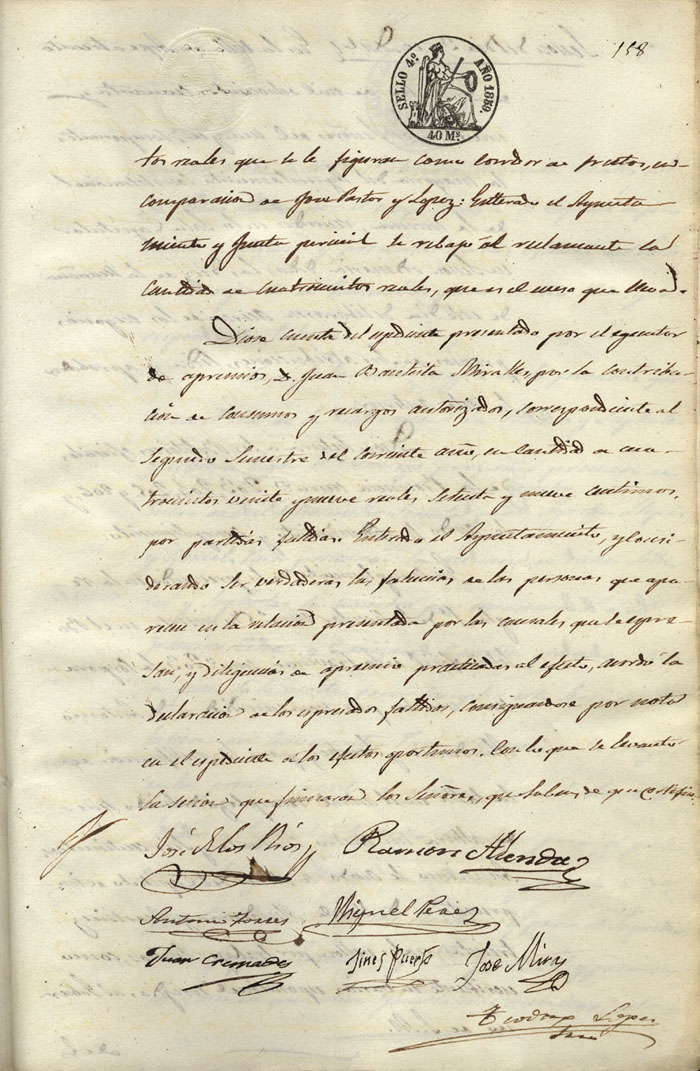 158
SELLO 4º AÑO 1859.
40 Ms.
tos reales que se le figuran como corredor de frutos, en
comparacion de Jose Pastor y Lopez: Enterado el Ayunta
miento y Junta pericial se rebajó al reclamante la
cantidad de cuatrocientos reales, que es el esceso que
Diose cuenta del espediente presentado por el egecutor
de apremios, D. Juan Bautista Miralles, por la contribu-
ción de consumos y recargos autorizados, correspondiente al
segundo semestre del corriente año, en cantidad de cua-
trocientos veinte y nueve reales setenta y nueve centimos,
por partidas fallidas. Enterado el Ayuntamiento, y consi-
derando ser verdaderas las falencias de las personas que apa-
recen en la relacion presentada por las causales que se espre-
san, y diligencias de apremio practicadas al efecto, acordó la
declaracion de los espresados fallidos, consignandose por nota
en el espediente a los efectos oportunos. Con lo que se levantó
la sesion, que firmaron los Señores, que saben, de que certifico.
José de los Rios Ramon Alenda
Antonio Torres Miguel Perez
Juan Cremades Gines Puerto Jose Mira
Teodoro Lopez
Srio